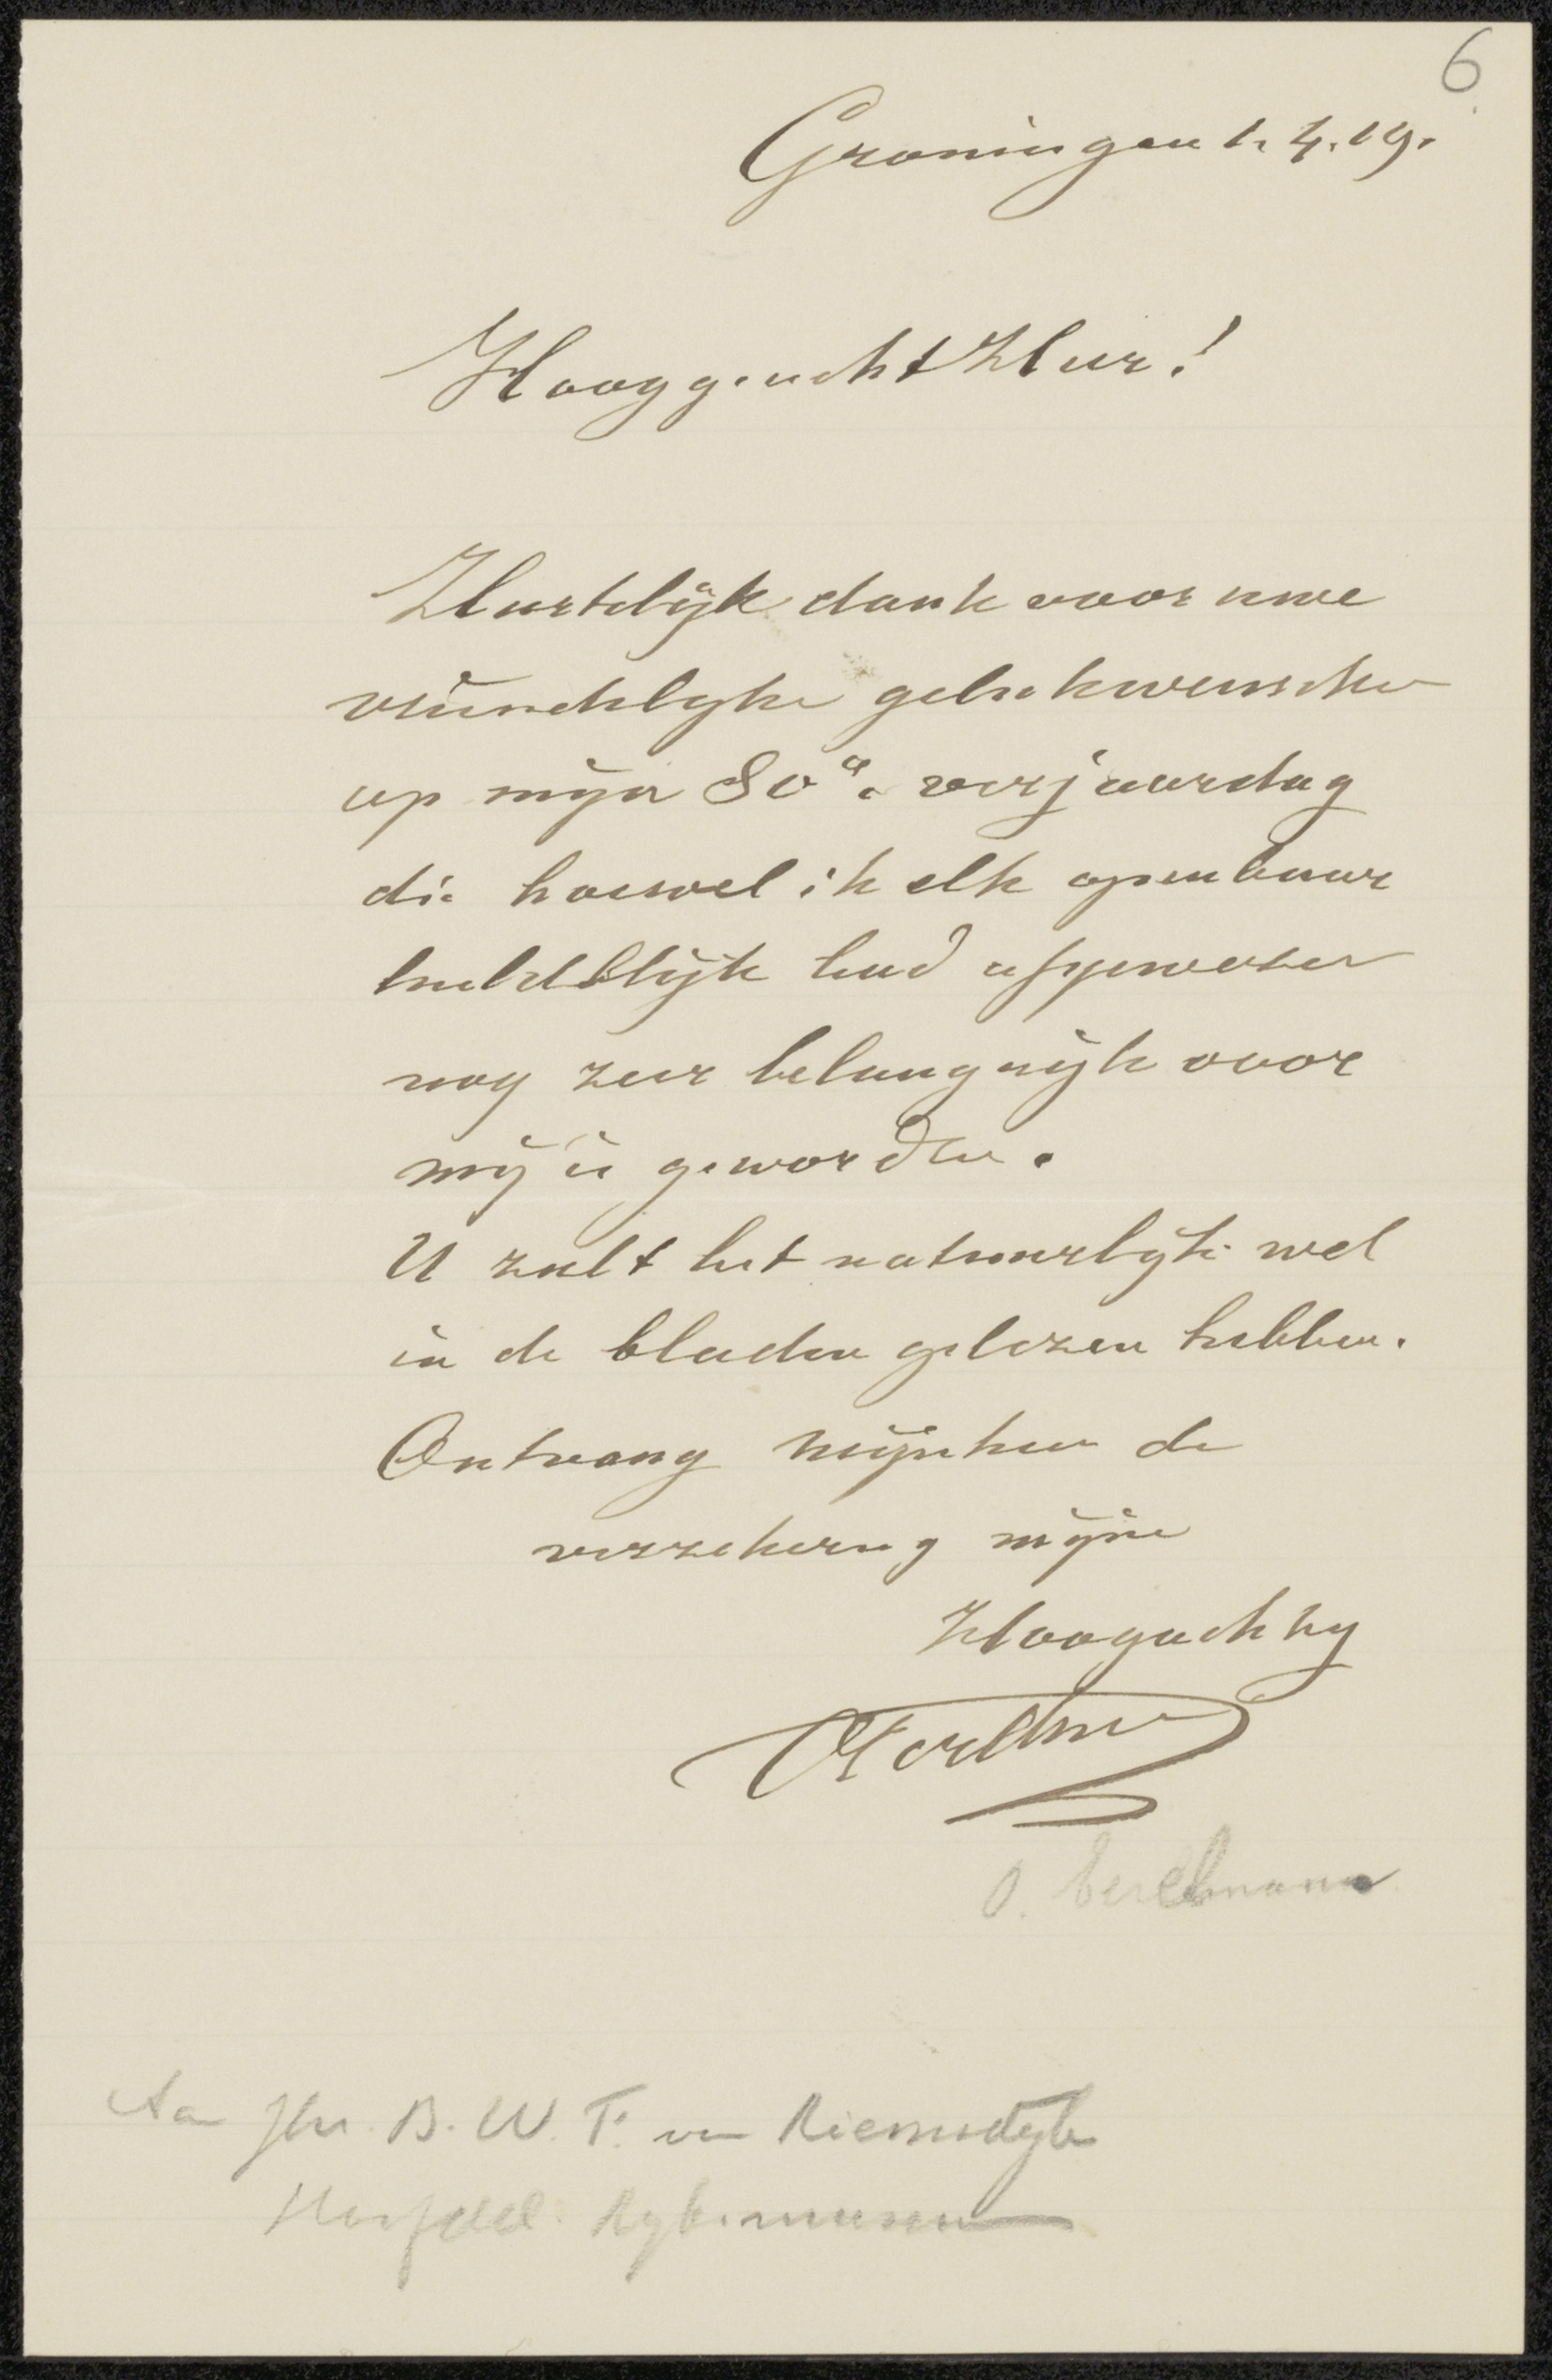 6
Groningen 1. 4. 19.
Hooggeacht Heer!
Hartelijk dank voor uwe
vriendelyke gelukwenschen
op mijn 80e. verjaardag
die hoewel ik elk openbaar
huldeblijk had afgewezen
nog zeer belangrijk voor
mij is geworden.
U zult het natuurlijk wel
in de bladen gelezen hebben.
Ontvang mijnheer de
verzekering mijne
Hoogachting
OEerelman
O. Eerelmann
Aan Jhr. B. W. F. van Riemsdyk
Hoofddir. Ryksmuseum